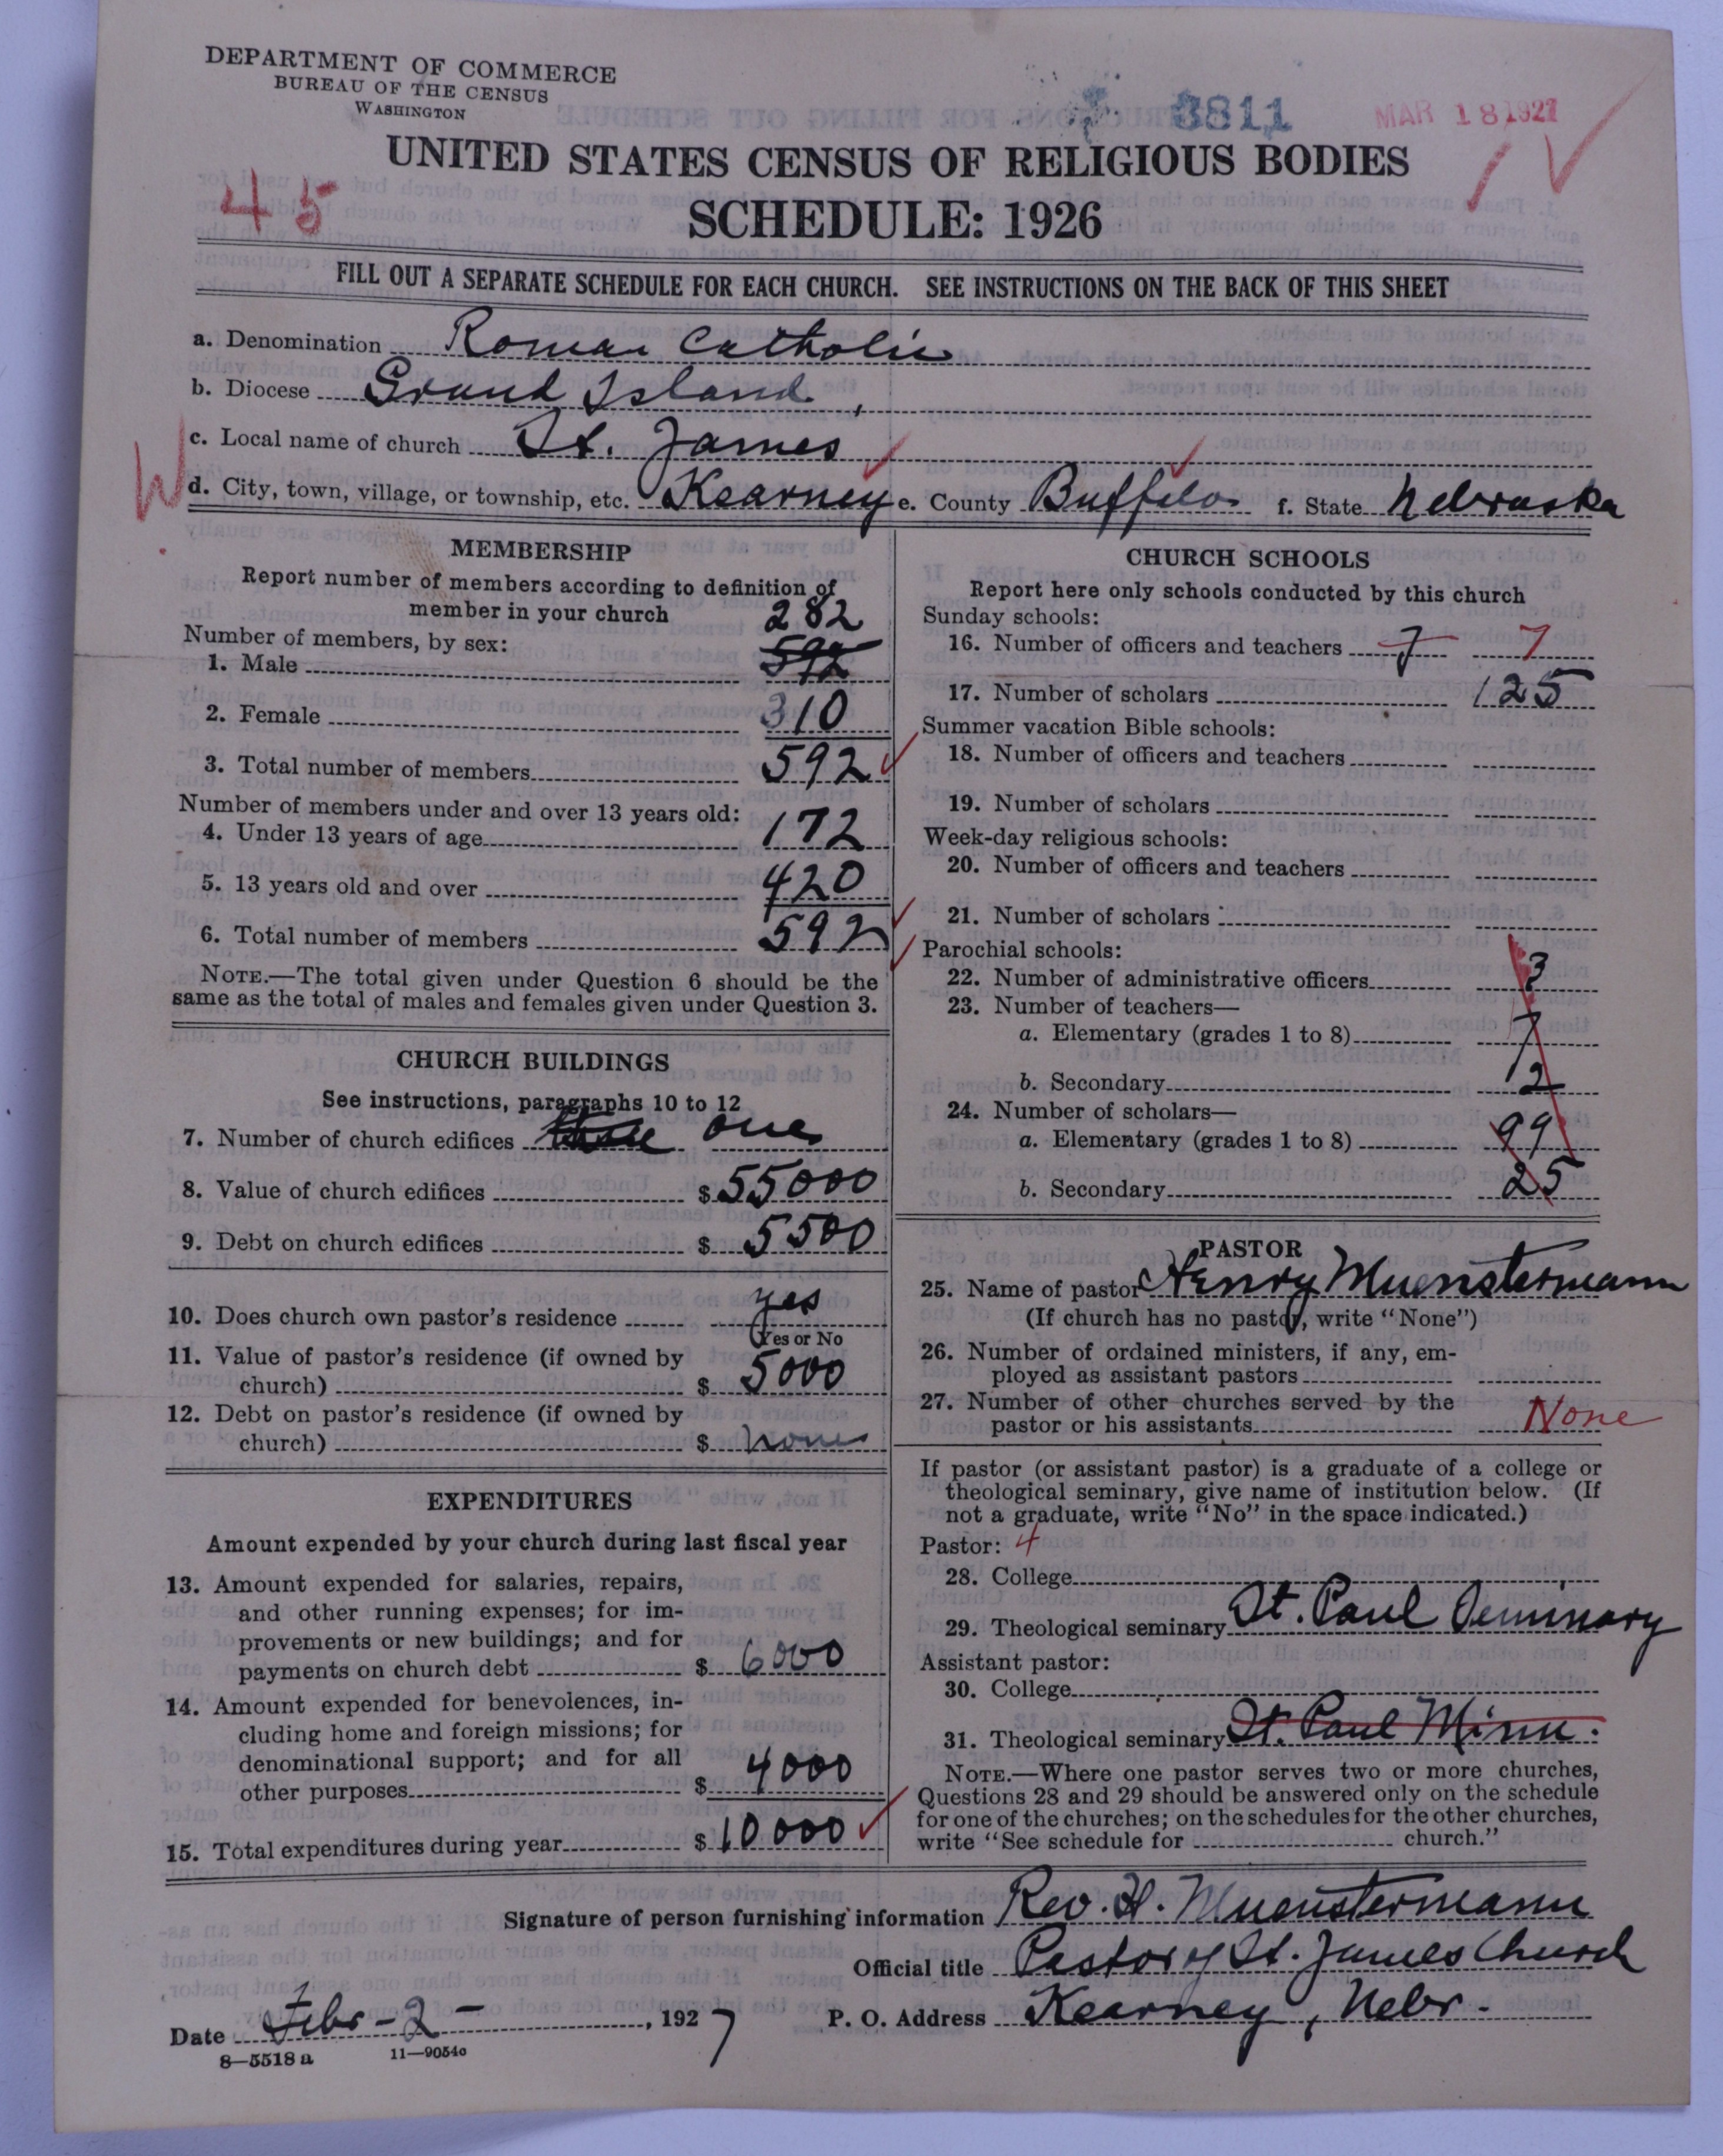 DEPARTMENT OF COMMERCE
BUREAU OF THE CENSUS
WASHINGTON
3811
MAR 18 1927
UNITED STATES CENSUS OF RELIGIOUS BODIES
45
SCHEDULE: 1926
FILL OUT A SEPARATE SCHEDULE FOR EACH CHURCH. SEE INSTRUCTIONS ON THE BACK OF THIS SHEET
a. Denomination Roman Catholic
b. Diocese Grand Island,
c. Local name of church St. James
W
d. City, town, village, or township, etc. Kearney e. County Buffalo f. State Nebraska
MEMBERSHIP
Report number of members according to definition of
member in your church
282
Number of members, by sex:
1. Male 592
2. Female 310
3. Total number of members 592
Number of members under and over 13 years old:
4. Under 13 years of age 172
5. 13 years old and over 420
6. Total number of members 592
NOTE.—The total given under Question 6 should be the
same as the total of males and females given under Question 3.
CHURCH BUILDINGS
See instructions, paragraphs 10 to 12
7. Number of church edifices three one
8. Value of church edifices $ 55000
9. Debt on church edifices $ 5500
10. Does church own pastor's residence yes
Yes or No
11. Value of pastor's residence (if owned by
church) $ 5000
12. Debt on pastor's residence (if owned by
church) $ none
EXPENDITURES
Amount expended by your church during last fiscal year
13. Amount expended for salaries, repairs,
and other running expenses; for im-
provements or new buildings; and for
payments on church debt $ 6000
14. Amount expended for benevolences, in-
cluding home and foreign missions; for
denominational support; and for all
other purposes $ 4000
15. Total expenditures during year $ 10000
CHURCH SCHOOLS
Report here only schools conducted by this church
Sunday schools:
16. Number of officers and teachers 7 7
17. Number of scholars 125
Summer vacation Bible schools:
18. Number of officers and teachers
19. Number of scholars
Week-day religious schools:
20. Number of officers and teachers
21. Number of scholars
Parochial schools:
22. Number of administrative officers 3
23. Number of teachers—
a. Elementary (grades 1 to 8) 7
b. Secondary 12
24. Number of scholars—
a. Elementary (grades 1 to 8) 99
b. Secondary 25
PASTOR
25. Name of pastor Henry Muenstermann
(If church has no pastor, write "None")
26. Number of ordained ministers, if any, em-
ployed as assistant pastors
27. Number of other churches served by the
pastor or his assistants None
If pastor (or assistant pastor) is a graduate of a college or
theological seminary, give name of institution below. (If
not a graduate, write "No" in the space indicated.)
Pastor: 4
28. College
29. Theological seminary St. Paul Seminary
Assistant pastor:
30. College
31. Theological seminary St. Paul Minn.
NOTE.—Where one pastor serves two or more churches,
Questions 28 and 29 should be answered only on the schedule
for one of the churches; on the schedules for the other churches,
write "See schedule for church."
Signature of person furnishing information Rev. H. Muenstermann
Official title Pastor of St. James Church
Date Febr - 2 - , 1927 P. O. Address Kearney, Nebr.
8—5518 a 11—9054c